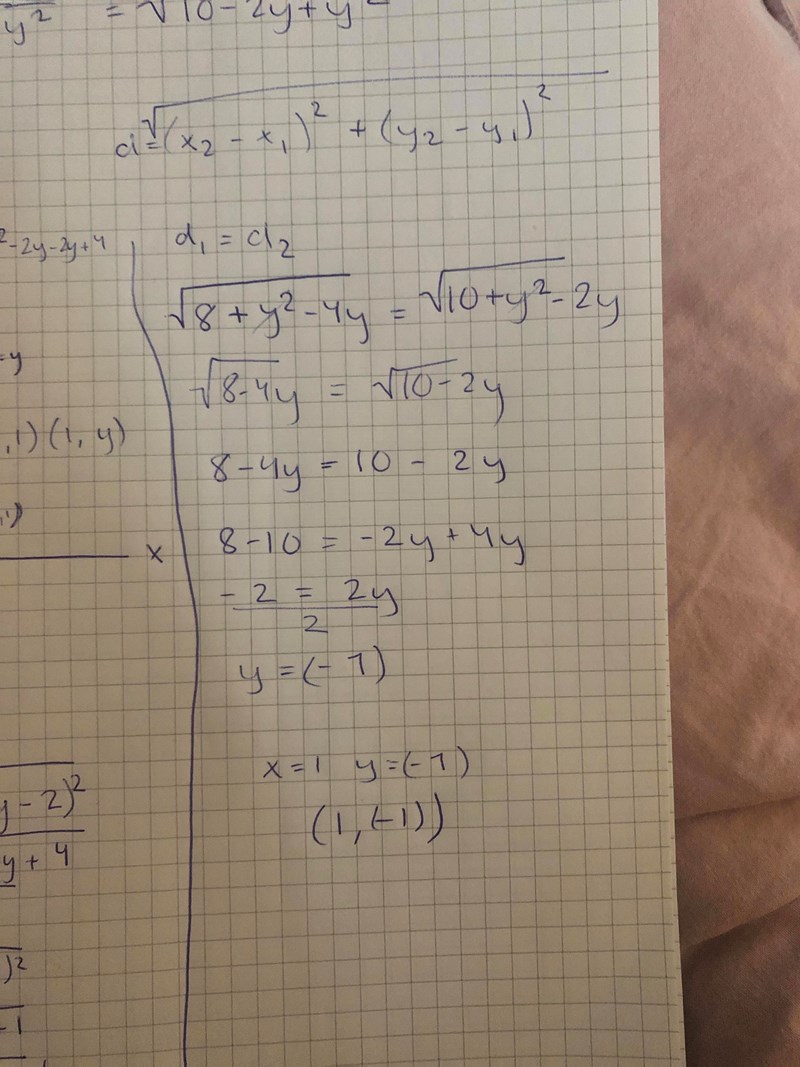 y² = √10-2y+y²
d=√(x₂ - x₁)² + (y₂ - y₁)²
²-2y-2y+4
d₁ = d₂
√8 + y² - 4y = √10+y²-2y
=y
√8-4y = √10-2y
,1) (1, y)
8-4y = 10 - 2y
x
8-10 = -2y + 4y
-2 = 2y
2
y = (-1)
x=1 y=(-1)
y - 2)²
(1, (-1))
y + 4
)²
-1